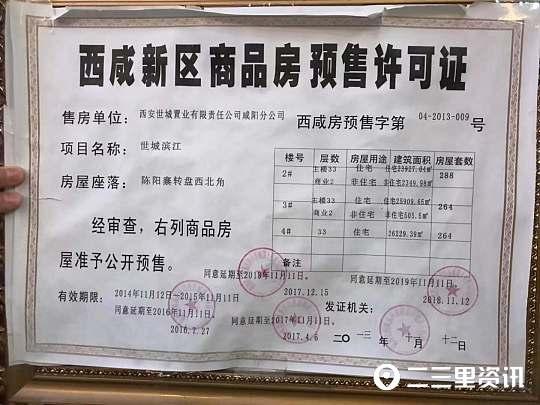 西咸新区商品房预售许可证
售房单位：西安世城置业有限责任公司咸阳分公司
西咸房预售字第04-2013-009号
项目名称：世城滨江
房屋座落：陈阳寨转盘西北角
经审查，右列商品房
屋准予公开预售。
楼号 层数 房屋用途 建筑面积 房屋套数
2# 主楼33 住宅 住宅23927.04㎡ 288
商业2 非住宅 非住宅2349.98㎡
3# 主楼33 住宅 住宅25909.65㎡ 264
商业2 非住宅 非住宅503.5㎡
4# 33 住宅 26229.39㎡ 264
备注
同意延期至2018年11月11日。
2017.12.15
同意延期至2019年11月11日。
2018.11.12
有效期限：2014年11月12日—2015年11月11日
同意延期至2016年11月11日。
2016.7.27
同意延期至2017年11月11日。
2017.4.6
发证机关：
二〇一三年十一月十二日
二三里资讯